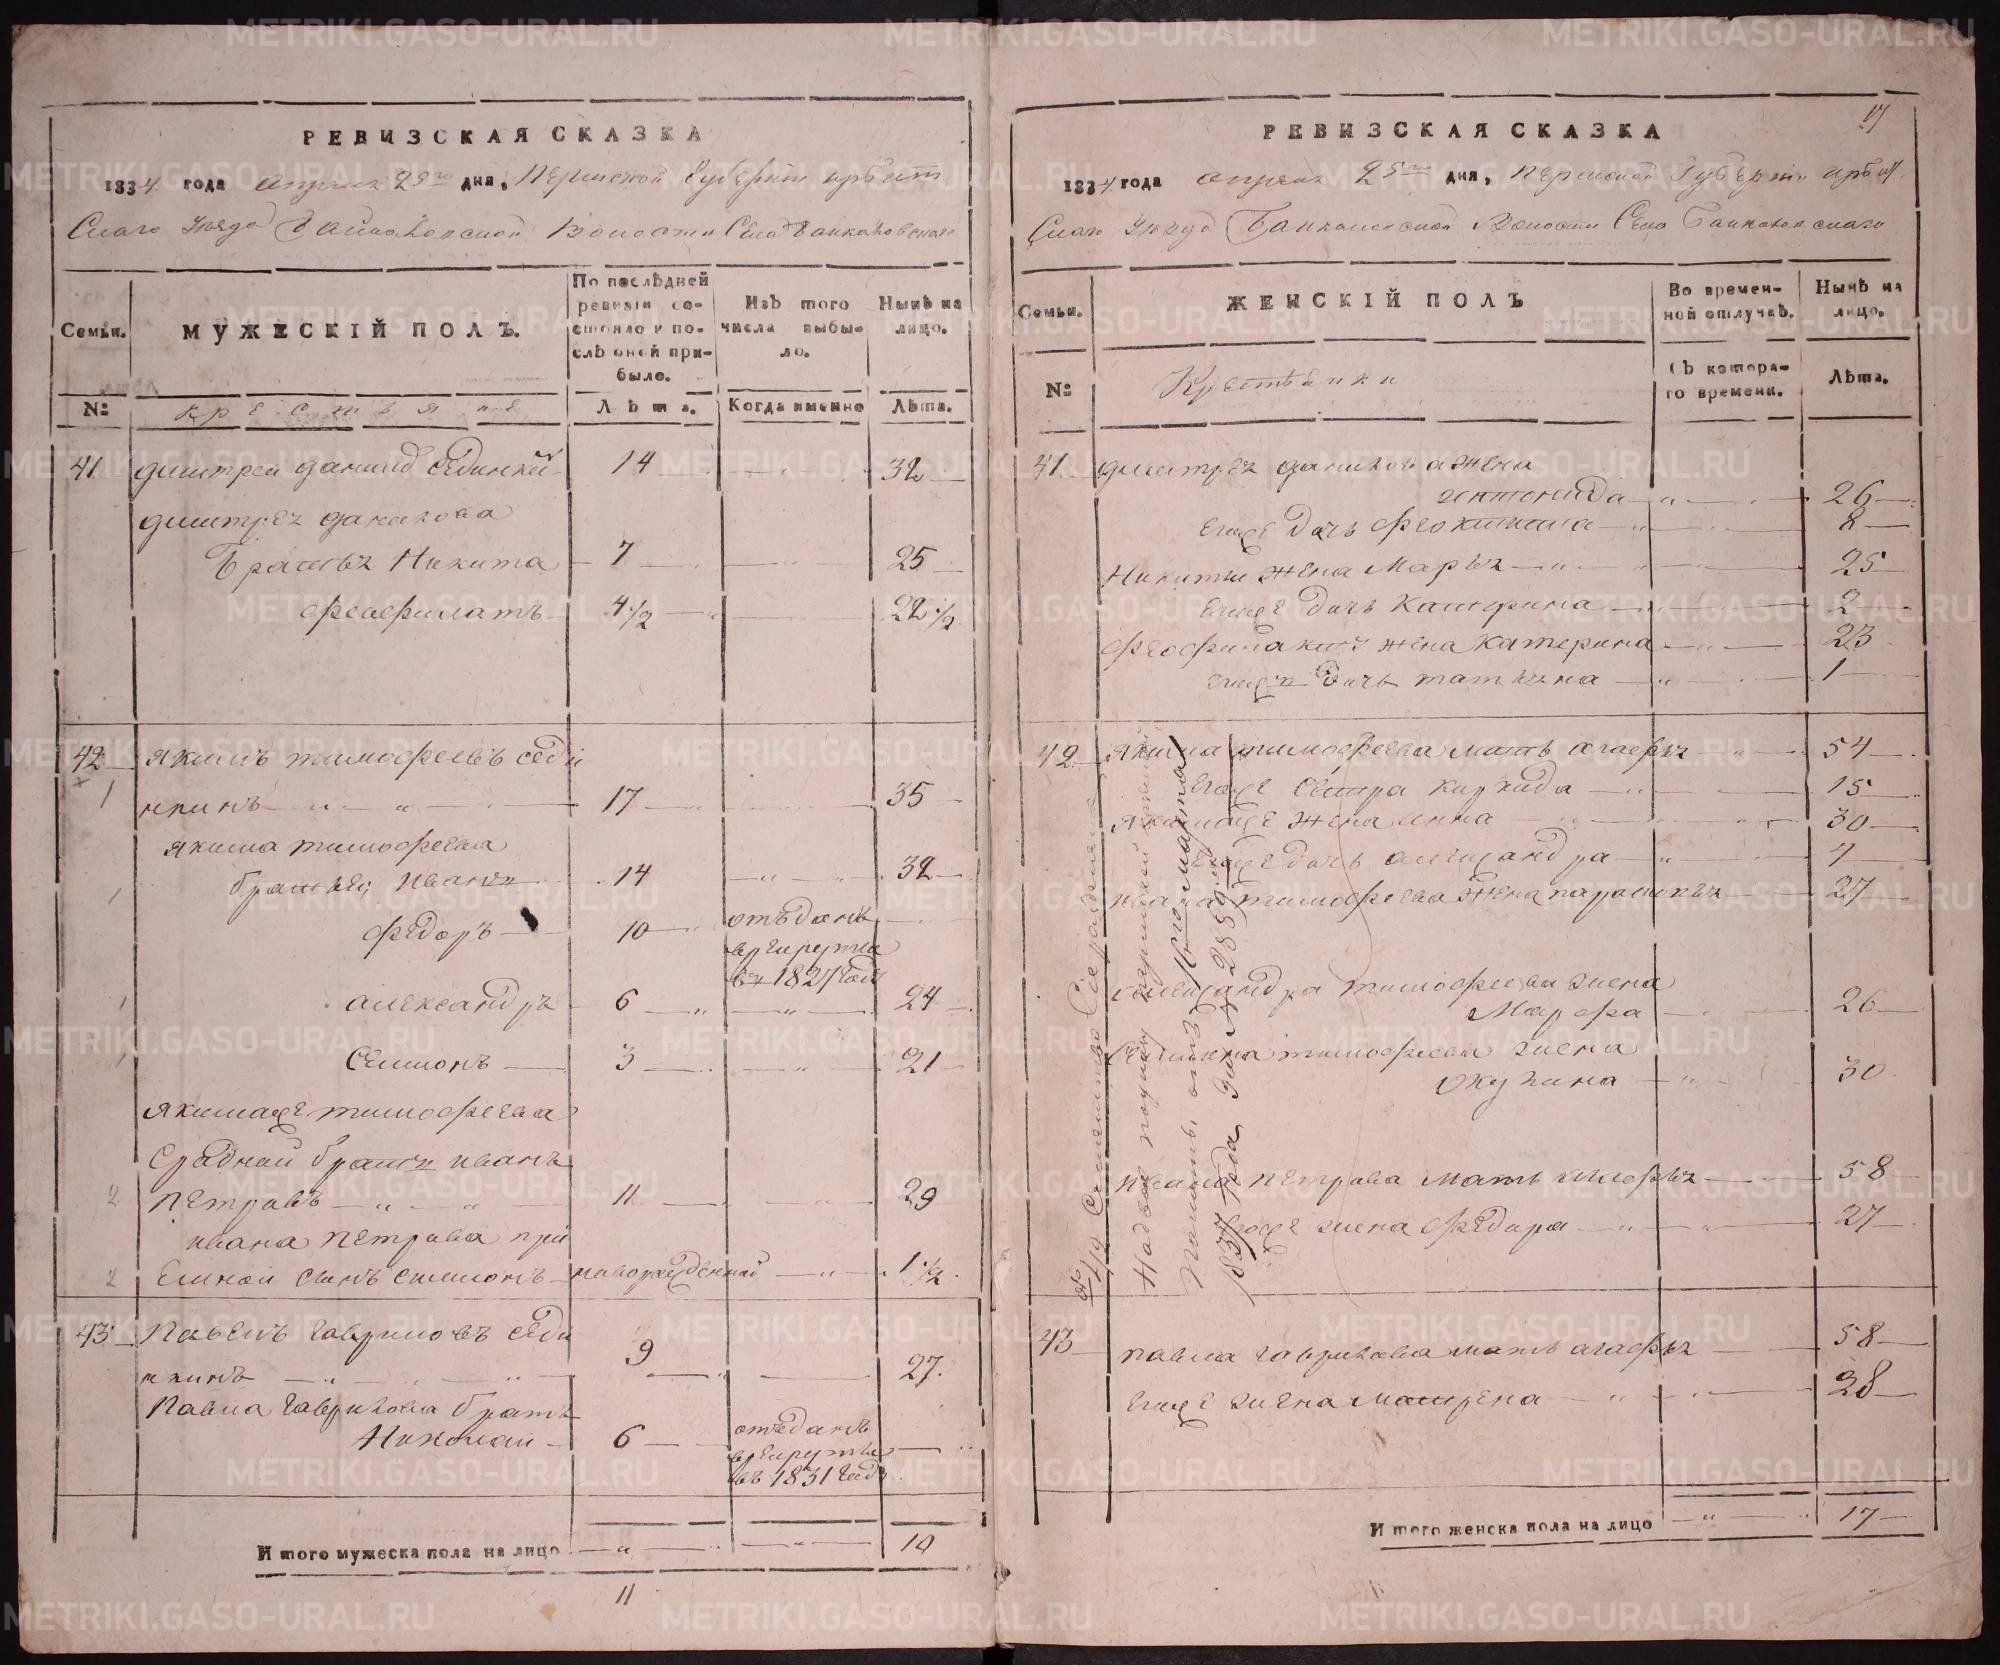 РЕВИЗСКАЯ СКАЗКА
1834 года апреля 25го дня, Пермской Губернiи ирбит
Скаго Уезда Байкаловской Волости Села Байкаловскаго
Семьи.
МУЖЕСКIЙ ПОЛЪ.
По послѣдней
ревизiи со-
стояло и по-
слѣ оной при-
было.
Изъ того
числа выбы-
ло.
Нынѣ на
лицо.
№
крестьяне
Лѣта.
Когда именно
Лѣта.
41 дмитреи данилов 14 32
дмитрея данилова
братья Никита 7 25
феофилатъ 4 1/2 22 1/2
42 якимъ тимофеевъ седу
нкинъ 17 35
1
якима тимофеева
братья иванъ 14 32
1
федоръ 10 отъданъ
в рекруты
въ 1827 годе
александръ 6 24
1
семионъ 3 21
1
якимаже тимофеева
иванъ
петровъ 11 29
2
ивана петрова
сынъ симионъ новорожденной 1 1/2
2
43 Павелъ гавриловъ седу
нкинъ 9 27
Павла гаврилова братъ
Николаи 6 отъданъ
в рекруты
въ 1831 годе
Итого мужеска пола на лицо 10
11
РЕВИЗСКАЯ СКАЗКА
1834 года апреля 25го дня, Пермской Губернiи ирбит
Скаго Уезда Байкаловской Волости Села Байкаловскаго
Семьи.
ЖЕНСКIЙ ПОЛЪ
Во времен-
ной отлучкѣ.
Нынѣ на
лицо.
№
Крестьянки
Съ котора-
го времени.
Лѣта.
41 дмитрея данилова жена
26
егоже дочь феоктиста 8
Никиты жена Марья 25
егоже дочь Катерина 2
жена катерина 23
егоже дочь татьяна 1
42 якима тимофеева мать агафья 54
егоже сестра 15
якимаже жена анна 30
егоже дочь александра 4
ивана тимофеева жена парасковья 27
александра тимофеева жена
Марфа 26
семиона тимофеева жена
окулина 30
ивана петрова мать 58
егоже жена федора 27
43 павла гаврилова мать агафья 58
егоже жена матрена 28
Итого женска пола на лицо 17
1837 года
METRIKI.GASO-URAL.RU